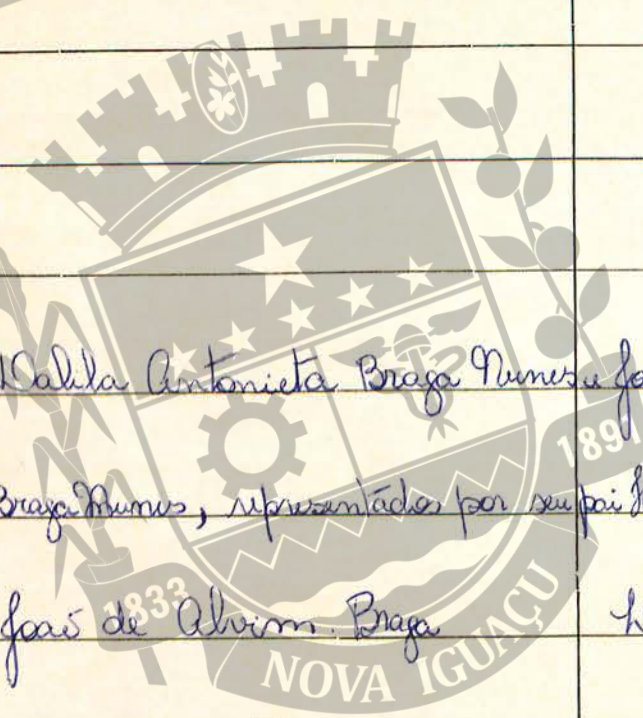 Dalila Antonieta Braga Nunes e
Braga Nunes, representádos por seu pai
João de Alvim. Braga
1833
1891
NOVA IGUAÇU